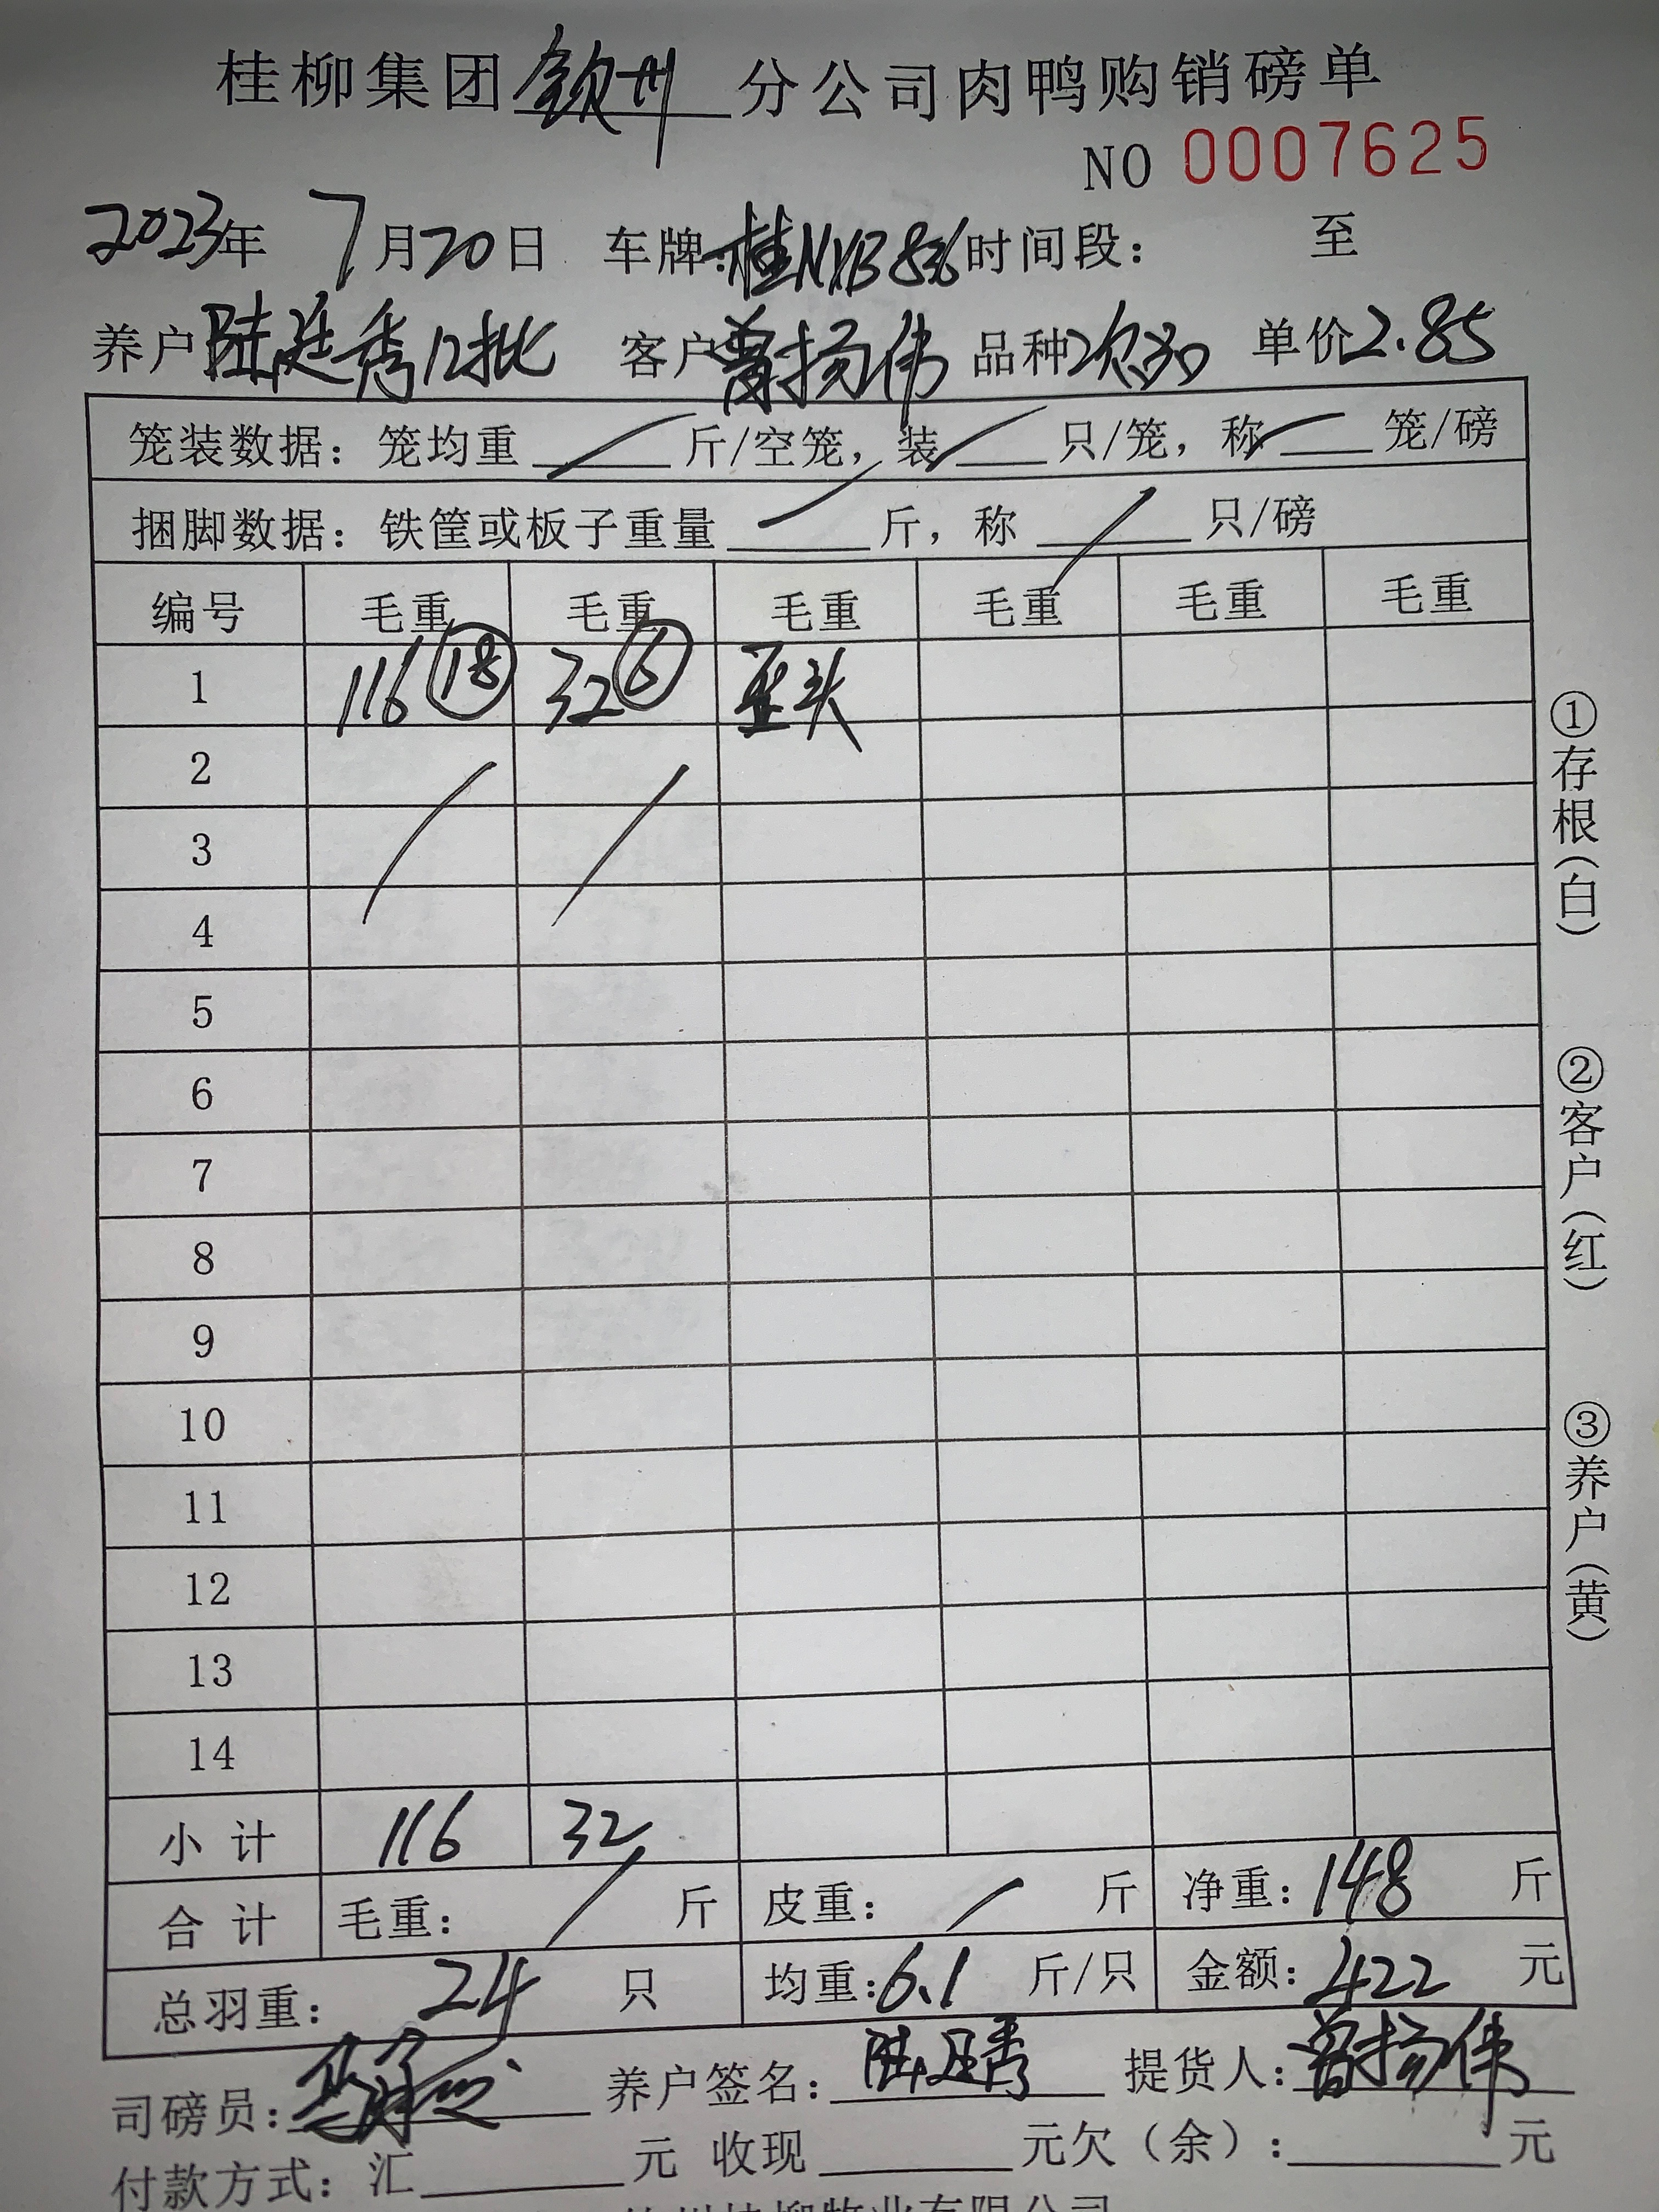 桂柳集团 钦州 分公司肉鸭购销磅单
NO 0007625
2023年 7月20日 车牌:桂NXB8 时间段: 至
养户 陆廷秀12批 客户 曾扬伟 品种 次 单价 2.85
笼装数据: 笼均重 / 斤/空笼, 装 / 只/笼, 称 / 笼/磅
捆脚数据: 铁筐或板子重量 / 斤, 称 / 只/磅
编号 毛重 毛重 毛重 毛重 毛重 毛重
1 116 ⑱ 32 ⑥ 歪头
2 / /
3
4
5
6
7
8
9
10
11
12
13
14
小计 116 32
合计 毛重: / 斤 皮重: / 斤 净重: 148 斤
总羽重: 24 只 均重: 6.1 斤/只 金额: 422 元
司磅员: 养户签名: 陆廷秀 提货人: 曾扬伟
付款方式: 汇 元 收现 元欠(余): 元
①存根(白)
②客户(红)
③养户(黄)